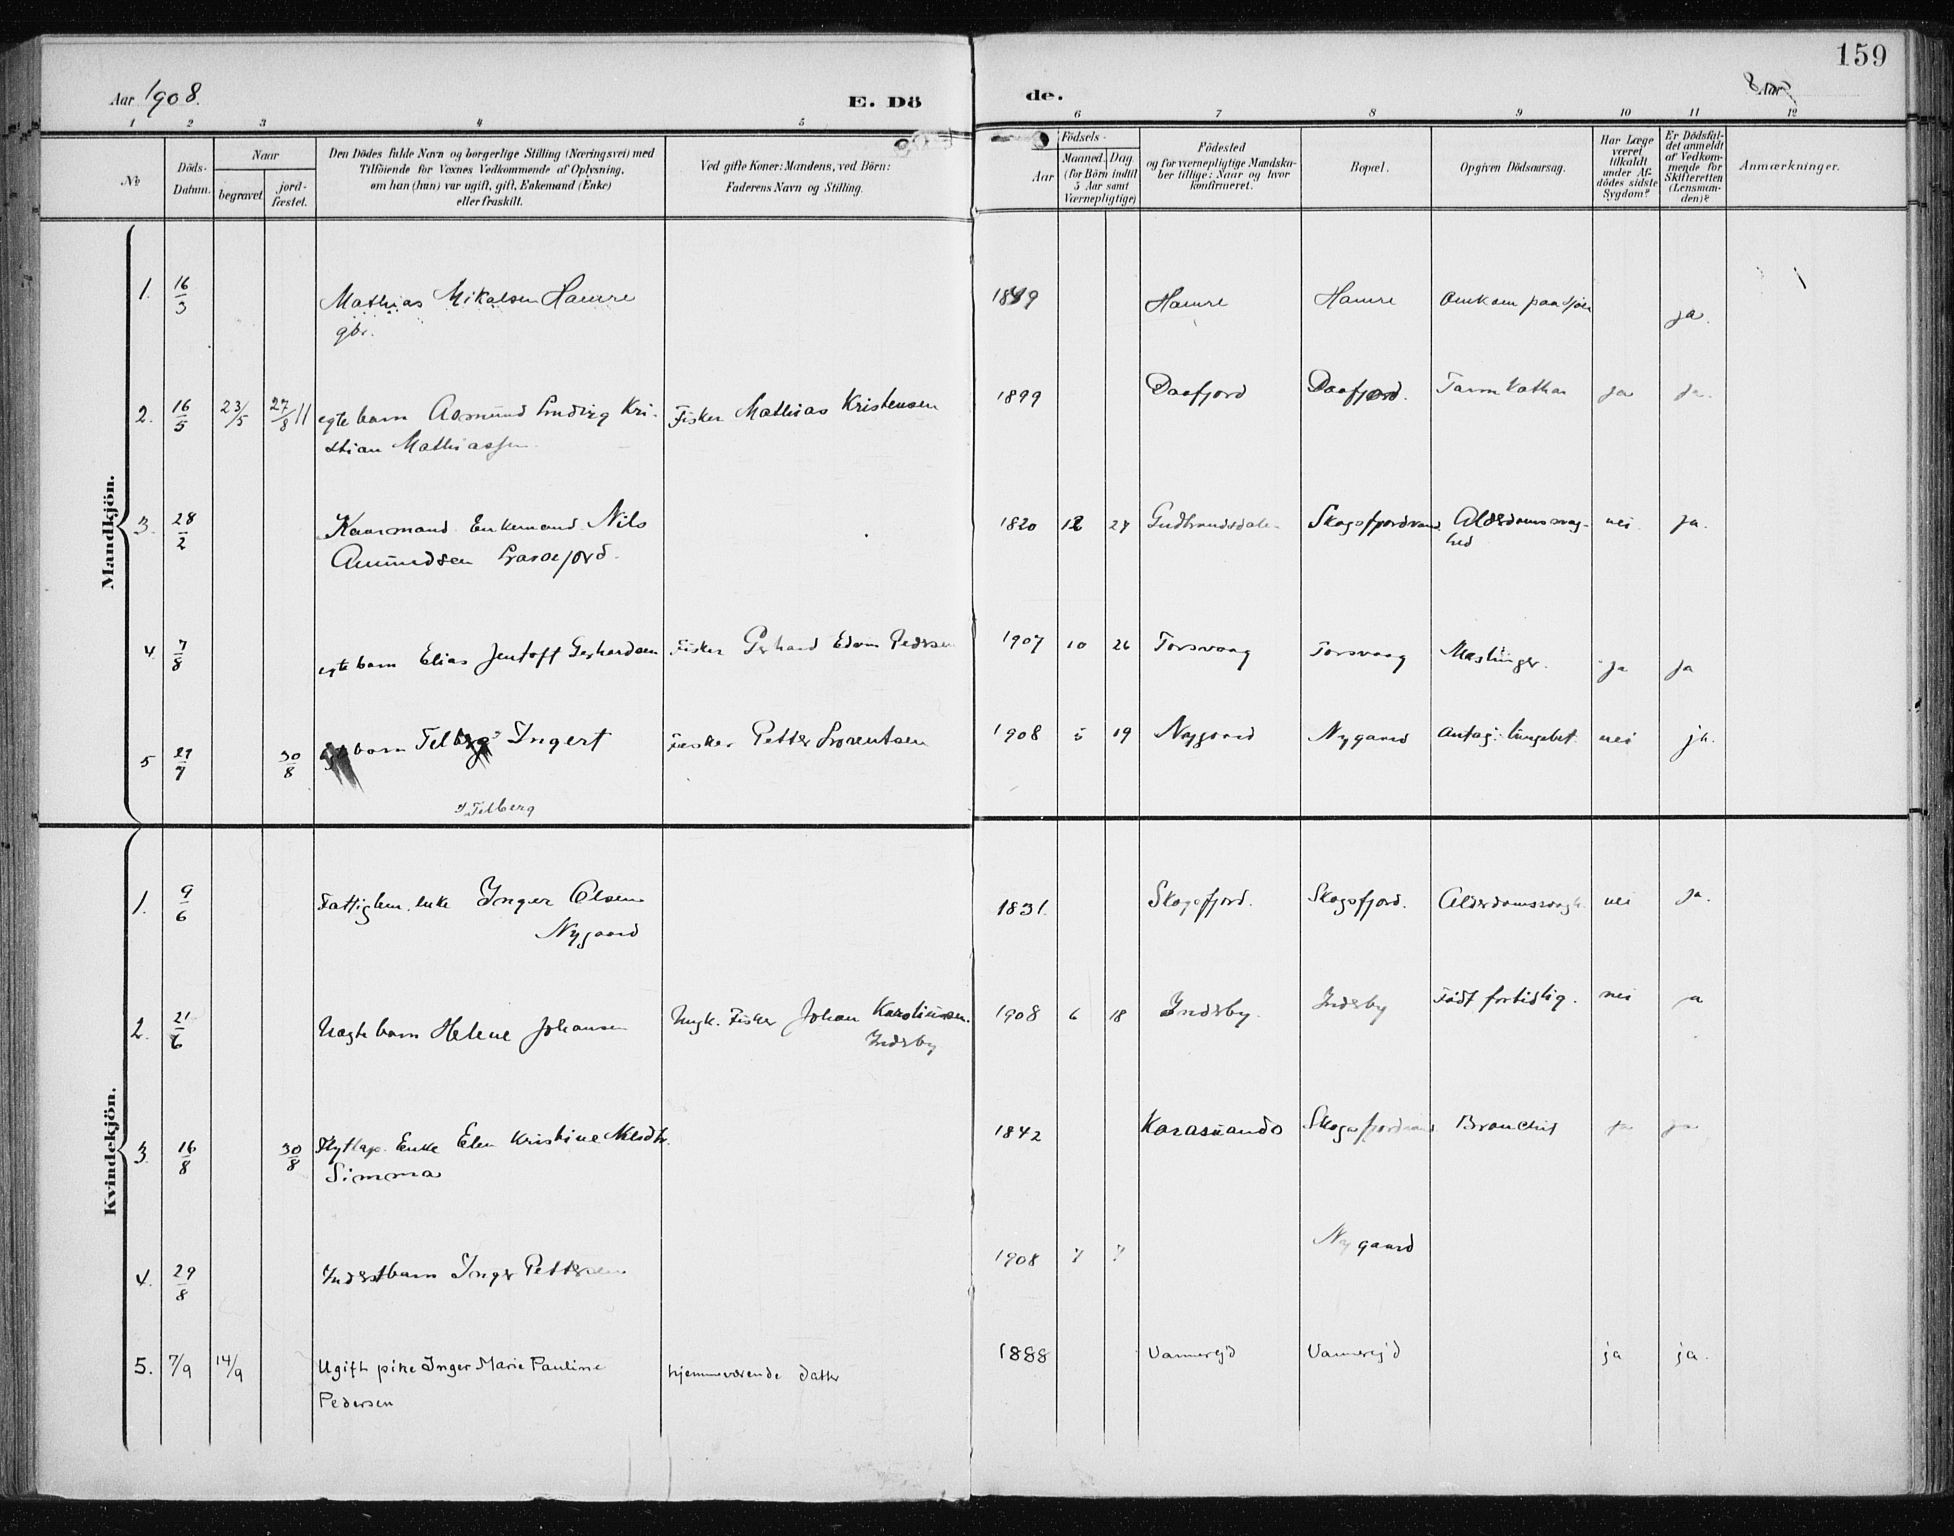 159
Aar 1908.
E. Döde.
Aar 8
1 2 3 4 5 6 7 8 9 10 11 12
№
Döds-Datum.
Naar
begravet
jord-fæstet.
Den Dödes fulde Navn og borgerlige Stilling (Næringsvei) med
Tilföiende for Voxnes Vedkommende af Oplysning,
om han (hun) var ugift, gift, Enkemand (Enke)
eller fraskilt.
Ved gifte Koner: Mandens, ved Börn:
Faderens Navn og Stilling.
Födsels-
Aar
Maaned. Dag
(for Börn indtil
5 Aar samt
Værnepligtige)
Födested
og for værnepligtige Mandska-
ber tillige: Naar og hvor
konfirmeret.
Bopæl.
Opgiven Dödsaarsag.
Har Læge
været
tilkaldt
under Af-
dödes sidste
Sygdom?
Er Dödsfal-
det anmeldt
af Vedkom-
mende for
Skifteretten
(Lensman-
den)?
Anmærkninger.
Mandkjön.
1. 16/3 Mathias Mikalsen Hamre Hamre Hamre Omkom paa Sjöen ja.
gbr.
2. 16/5 23/5 27/8 11 egte barn Asmund Ludvig Kri- Fisker Mathias Kristensen 1899 Daafjord Daafjord. Tarm Kathar ja ja.
stian Mathiassen
3. 28/2 Kaarmand Enkemand Nils 1820 12 27 Gudbrandsdalen Skogsfjordvand Alderdomssvag- nei ja.
hed
Amundsen
4 7/8 egte barn Elias Jentoft Gerhardsen Fisker Gerhard Edvin Pedersen 1907 10 26 Torsvaag Torsvaag Meslinger. ja ja
5 27/7 30/8 barn Telberg Ingert Fisker Petter Lorentsen 1908 5 19 Nygaard Nygaard antag. nei ja.
Telberg
Kvindekjön.
1. 9/6 Fattiglem. enke Inger Olsen 1831. Skogsfjord. Skogsfjord. Alderdomssvagh. nei ja.
Nygaard
2. 21/6 Uægte barn Helene Johansen Ungk. Fisker Johan Karoliussen. 1908 6 18 Indsby. Indsby Født fortidlig. nei ja
Indsby
3. 16/8 30/8 Flytlap. Enke Elen Kristine Nilsdtr. 1842 Karasuando Skogsfjordvand Bronchit ja ja
Simma
4. 29/8 Inderstbarn Inger Pettersen 1908 ? ? Nygaard
5. 7/9 14/9 Ugift pike Inger Marie Pauline hjemmeværende datter 1888 Vannerejd Vannerejd ja ja.
Pedersen